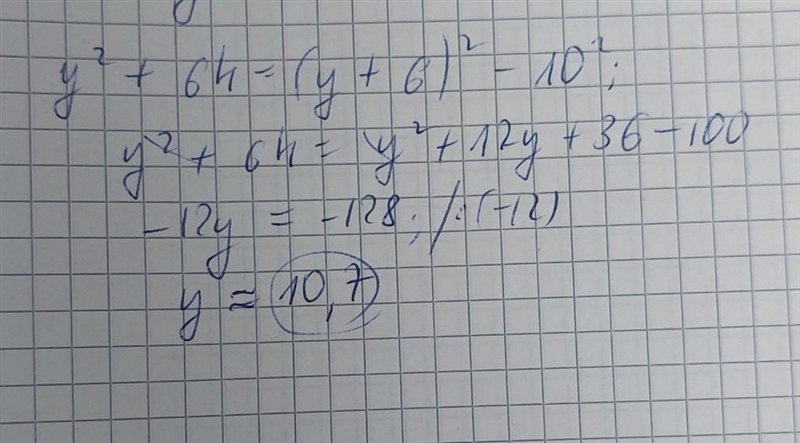 y² + 64 = (y + 6)² - 10²;
y² + 64 = y² + 12y + 36 - 100
-12y = -128; /:(-12)
y ≈ 10,7